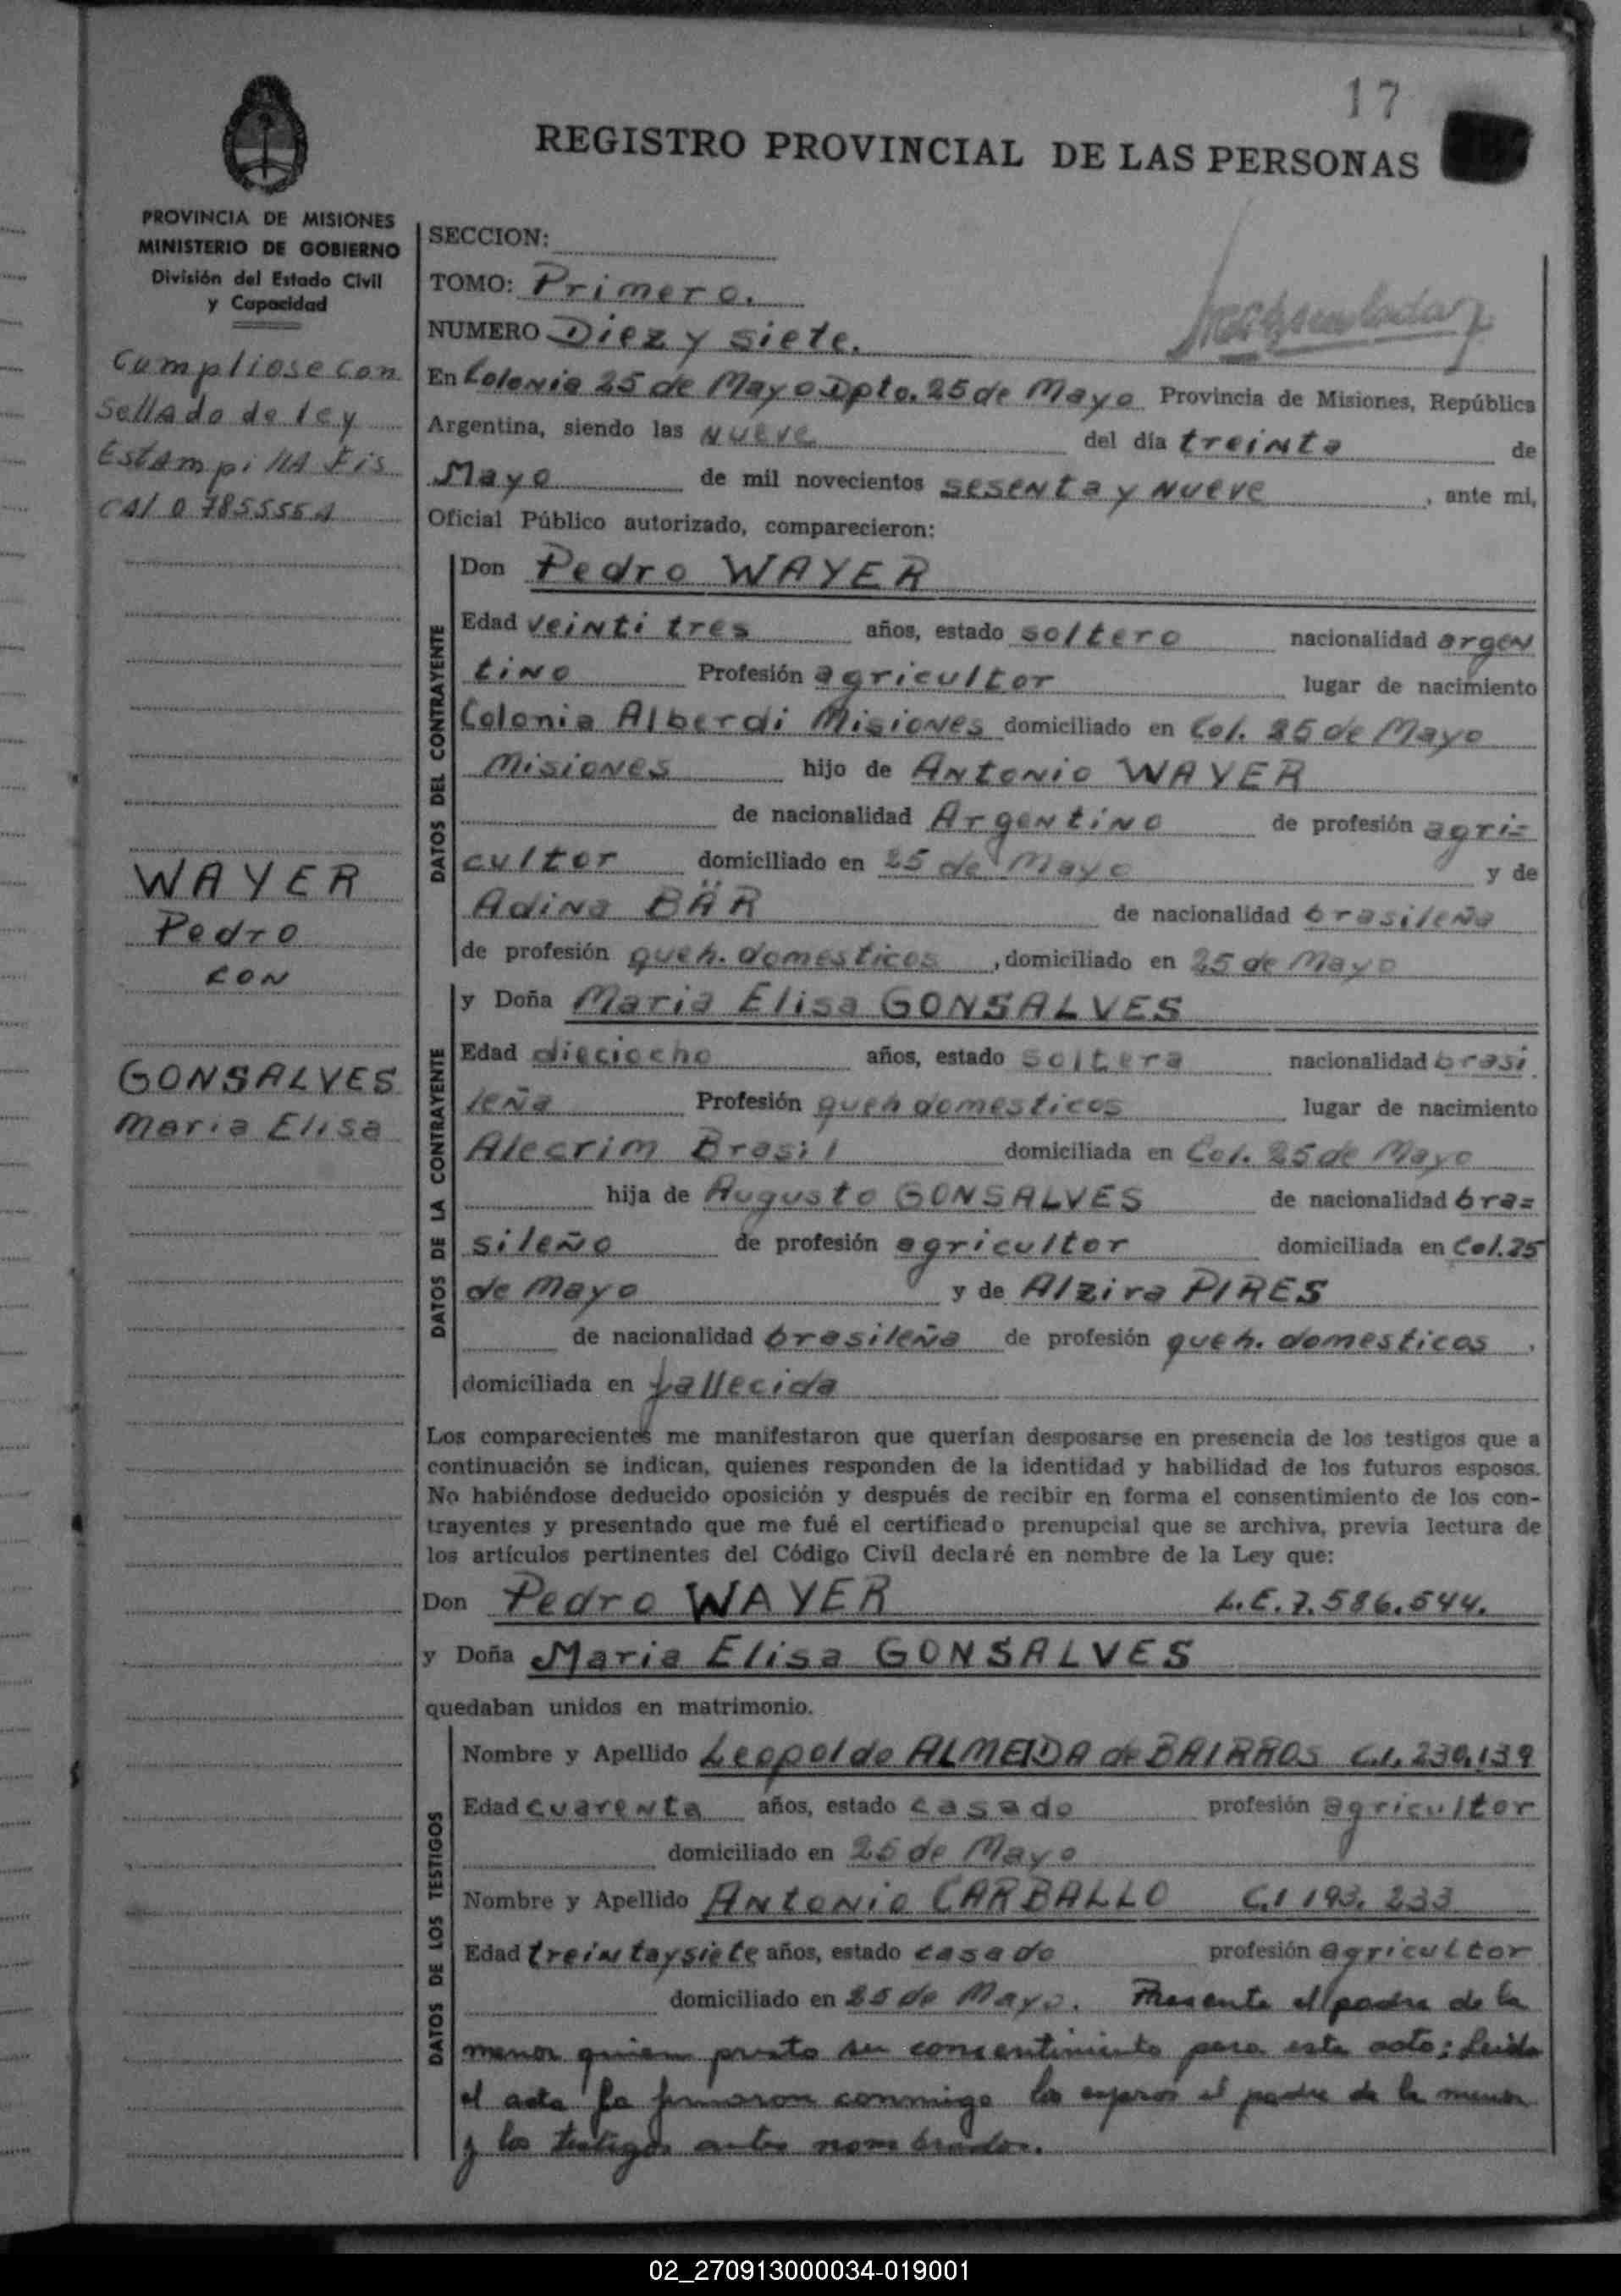 17
REGISTRO PROVINCIAL DE LAS PERSONAS
PROVINCIA DE MISIONES
MINISTERIO DE GOBIERNO
División del Estado Civil
y Capacidad
Cumpliose con
Sellado de ley
Estampilla Fis
cal 0785555A
WAYER
Pedro
CON
GONSALVES
Maria Elisa
SECCION:
TOMO: Primero.
NUMERO Diez y siete.
En Colonia 25 de Mayo Dpto. 25 de Mayo Provincia de Misiones, República
Argentina, siendo las Nueve del día treinta de
Mayo de mil novecientos sesenta y Nueve, ante mi,
Oficial Público autorizado, comparecieron:
DATOS DEL CONTRAYENTE
Don Pedro WAYER
Edad veinti tres años, estado soltero nacionalidad argen
tino Profesión agricultor lugar de nacimiento
Colonia Alberdi Misiones domiciliado en Col. 25 de Mayo
Misiones hijo de Antonio WAYER
de nacionalidad Argentino de profesión agri=
cultor domiciliado en 25 de Mayo y de
Adina BÄR de nacionalidad brasileña
de profesión queh. domesticos, domiciliado en 25 de Mayo
DATOS DE LA CONTRAYENTE
y Doña Maria Elisa GONSALVES
Edad dieciocho años, estado soltera nacionalidad brasi
leña Profesión queh domesticos lugar de nacimiento
Alecrim Brasil domiciliada en Col. 25 de Mayo
hija de Augusto GONSALVES de nacionalidad bra=
sileño de profesión agricultor domiciliada en Col. 25
de Mayo y de Alzira PIRES
de nacionalidad brasileña de profesión queh. domesticos,
domiciliada en fallecida
Los comparecientes me manifestaron que querían desposarse en presencia de los testigos que a
continuación se indican, quienes responden de la identidad y habilidad de los futuros esposos.
No habiéndose deducido oposición y después de recibir en forma el consentimiento de los con-
trayentes y presentado que me fué el certificado prenupcial que se archiva, previa lectura de
los artículos pertinentes del Código Civil declaré en nombre de la Ley que:
Don Pedro WAYER L.E. 7.586.544.
y Doña Maria Elisa GONSALVES
quedaban unidos en matrimonio.
DATOS DE LOS TESTIGOS
Nombre y Apellido Leopoldo ALMEIDA de BAIRROS C.I. 230.139
Edad cuarenta años, estado casado profesión agricultor
domiciliado en 25 de Mayo
Nombre y Apellido Antonio CARBALLO C.I 193. 233
Edad treinta y siete años, estado casado profesión agricultor
domiciliado en 25 de Mayo. Presente el padre de la
menor quien presto su consentimiento para este acto; Leida
el acta la firmaron conmigo los esposos el padre de la menor
y los testigos antes nombrados.
02_270913000034-019001